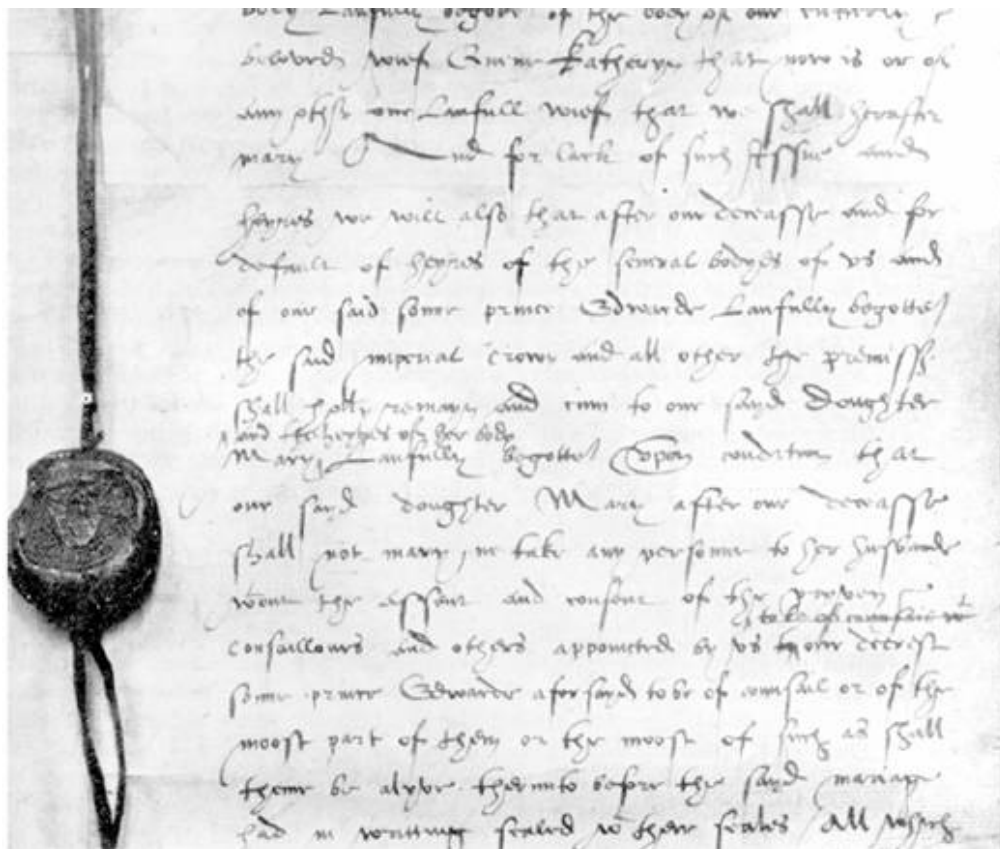 body Laufully begotte of the body of our entierly
beloved wief Quene Katheryn that now is or of
any other our Laufull wief that we shall herafter
mary And for lack of such Issue and
heyres we will also that after our deceasse and for
default of heyres of the several bodyes of us and
of our said sonne prince Edwarde Laufully begotten
the said imperial Crowne and all other the premiss
shall holly remayn and cum to our sayd Doughter
and the heyres of her body
Mary Laufully begotten Upon condition that
our sayd doughter Mary after our deceasse
shall not mary ne take any personne to her husbande
wtout the assent and consent of the prevey
to be of counsail wt
consaillours and others appoincted by us to our deerest
sonne prince Edwarde aforsayd to be of counsail or of the
moost part of them or the moost of such as shall
thenne be alyve therunto before the sayd mariage
had in writting sealed wt their seales All which